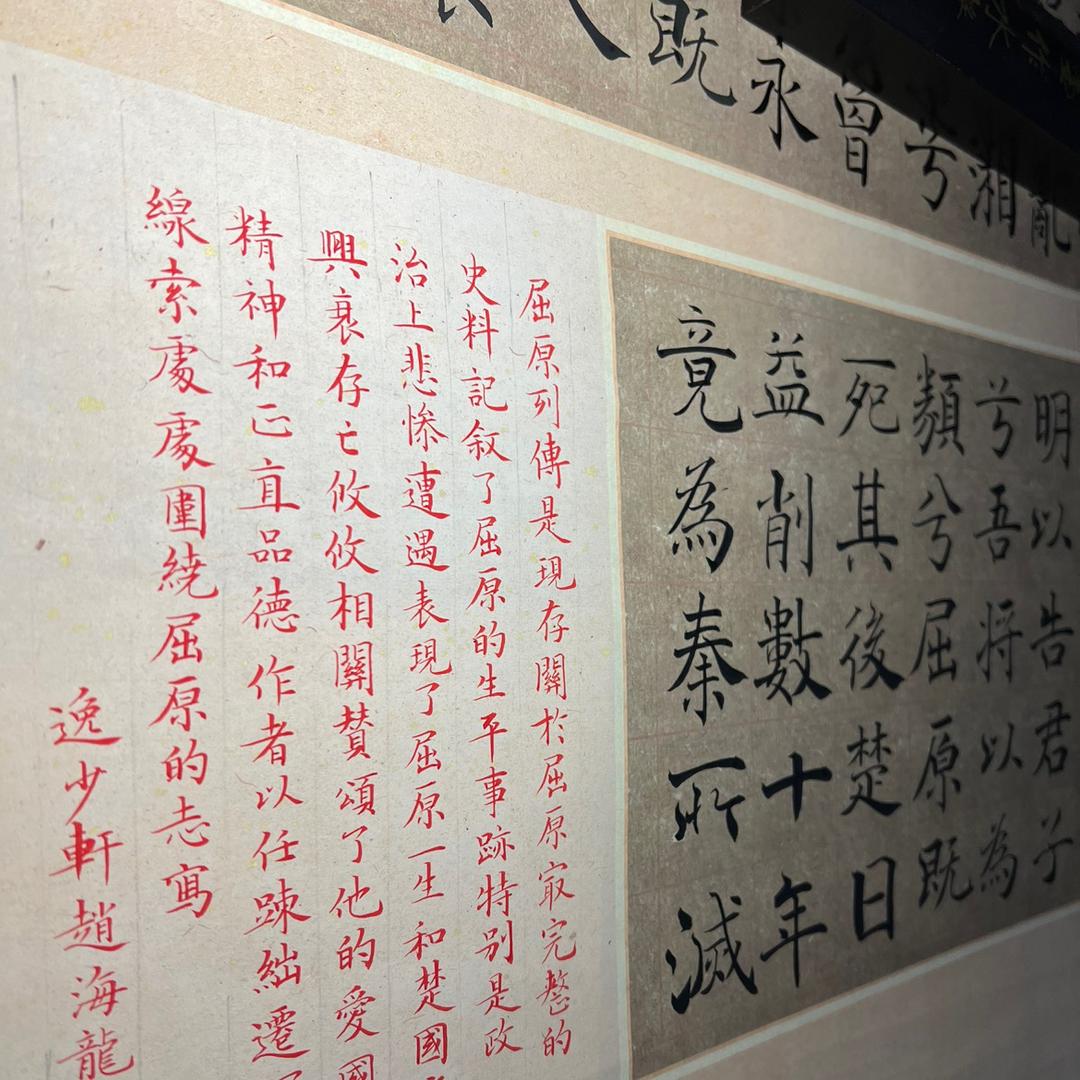 亂
湘
兮
曾
永
既
明以告君子
兮吾将以為
類兮屈原既
死其後楚日
益削數十年
竟為秦所滅
屈原列傳是現存關於屈原最完整的
史料記叙了屈原的生平事跡特別是政
治上悲慘遭遇表現了屈原一生和楚國
興衰存亡攸攸相關贊頌了他的愛國
精神和正直品德作者以任踈絀遷
線索處處圍繞屈原的志寫
逸少軒趙海龍